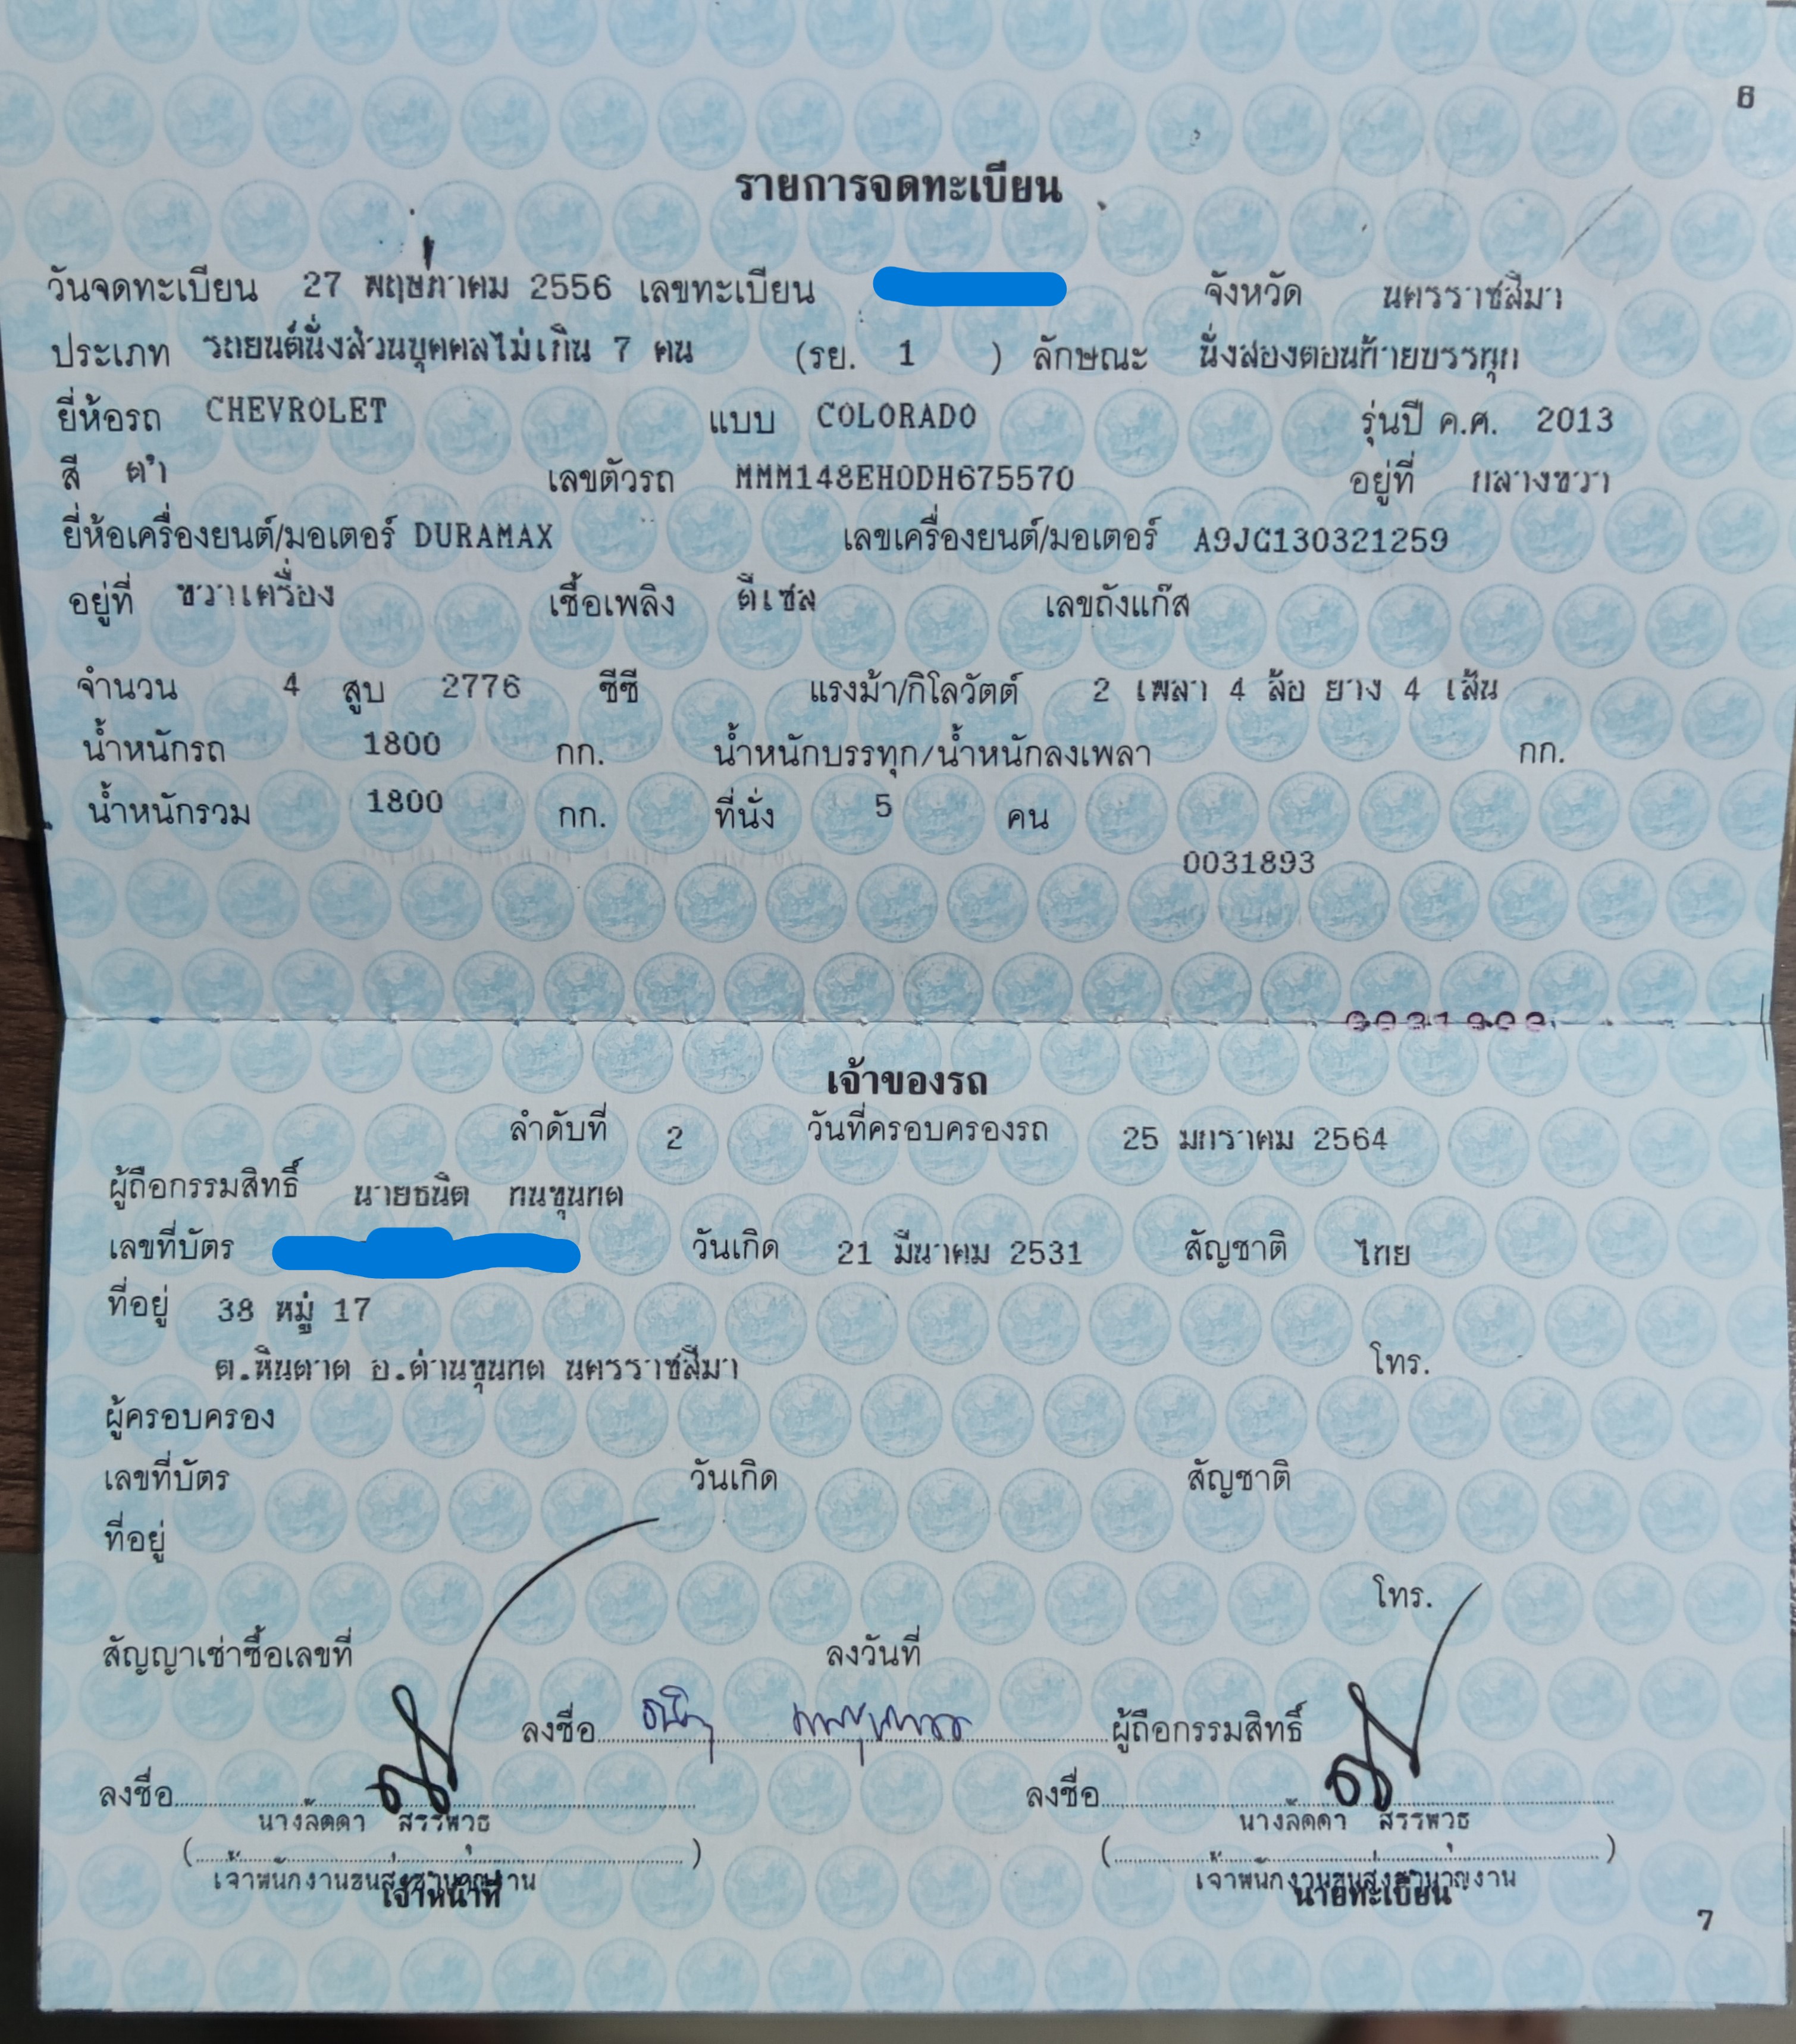 6
รายการจดทะเบียน
วันจดทะเบียน 27 พฤษภาคม 2556 เลขทะเบียน จังหวัด นครราชสีมา
ประเภท รถยนต์นั่งส่วนบุคคลไม่เกิน 7 คน (รย. 1 ) ลักษณะ นั่งสองตอนท้ายบรรทุก
ยี่ห้อรถ CHEVROLET แบบ COLORADO รุ่นปี ค.ศ. 2013
สี ดำ เลขตัวรถ MMM148EH0DH675570 อยู่ที่ กลางขวา
ยี่ห้อเครื่องยนต์/มอเตอร์ DURAMAX เลขเครื่องยนต์/มอเตอร์ A9JG130321259
อยู่ที่ ขวาเครื่อง เชื้อเพลิง ดีเซล เลขถังแก๊ส
จำนวน 4 สูบ 2776 ซีซี แรงม้า/กิโลวัตต์ 2 เพลา 4 ล้อ ยาง 4 เส้น
น้ำหนักรถ 1800 กก. น้ำหนักบรรทุก/น้ำหนักลงเพลา กก.
น้ำหนักรวม 1800 กก. ที่นั่ง 5 คน
0031893
เจ้าของรถ
ลำดับที่ 2 วันที่ครอบครองรถ 25 มกราคม 2564
ผู้ถือกรรมสิทธิ์ นายธนิต ทนขุนทด
เลขที่บัตร วันเกิด 21 มีนาคม 2531 สัญชาติ ไทย
ที่อยู่ 38 หมู่ 17
ต.หินดาด อ.ด่านขุนทด นครราชสีมา โทร.
ผู้ครอบครอง
เลขที่บัตร วันเกิด สัญชาติ
ที่อยู่
โทร.
สัญญาเช่าซื้อเลขที่ ลงวันที่
ลงชื่อ ผู้ถือกรรมสิทธิ์
ลงชื่อ ลงชื่อ
นางลัดดา สรรพวุธ นางลัดดา สรรพวุธ
( ) ( )
เจ้าพนักงานขนส่งชำนาญงาน เจ้าพนักงานขนส่งชำนาญงาน
เจ้าหน้าที่ นายทะเบียน
7